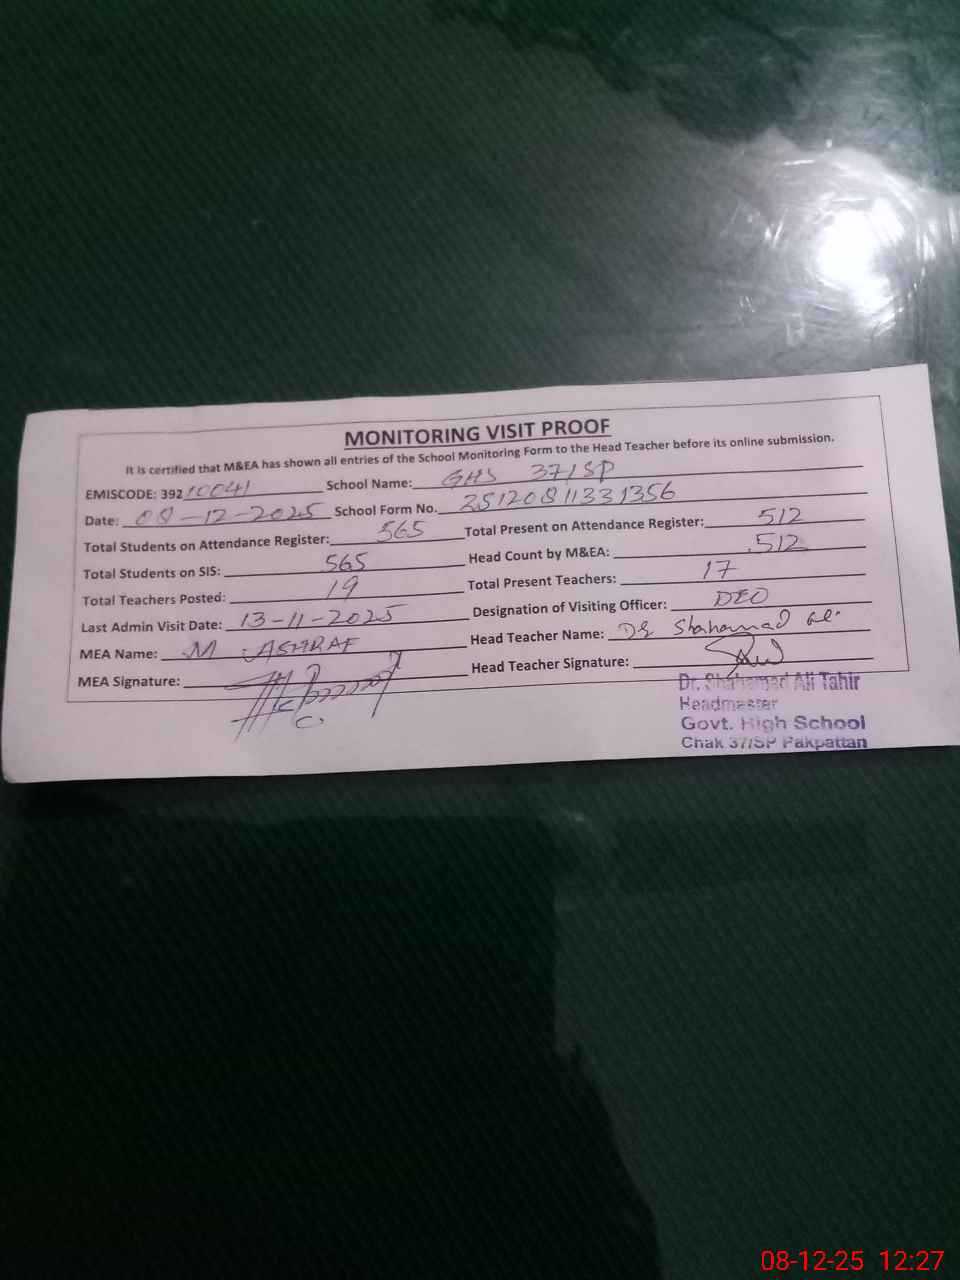 MONITORING VISIT PROOF
It is certified that M&EA has shown all entries of the School Monitoring Form to the Head Teacher before its online submission.
EMISCODE: 39210041 School Name: GHS 37/SP
Date: 08-12-2025 School Form No. 2512081133 1356
Total Students on Attendance Register: 565 Total Present on Attendance Register: 512
Total Students on SIS: 565 Head Count by M&EA: 512
Total Teachers Posted: 19 Total Present Teachers: 17
Last Admin Visit Date: 13-11-2025 Designation of Visiting Officer: DEO
MEA Name: M. ASHRAF Head Teacher Name: Dr Shahamad Ali
MEA Signature: Head Teacher Signature:
Dr. Shahamad Ali Tahir
Headmaster
Govt. High School
Chak 37/SP Pakpattan
08-12-25 12:27